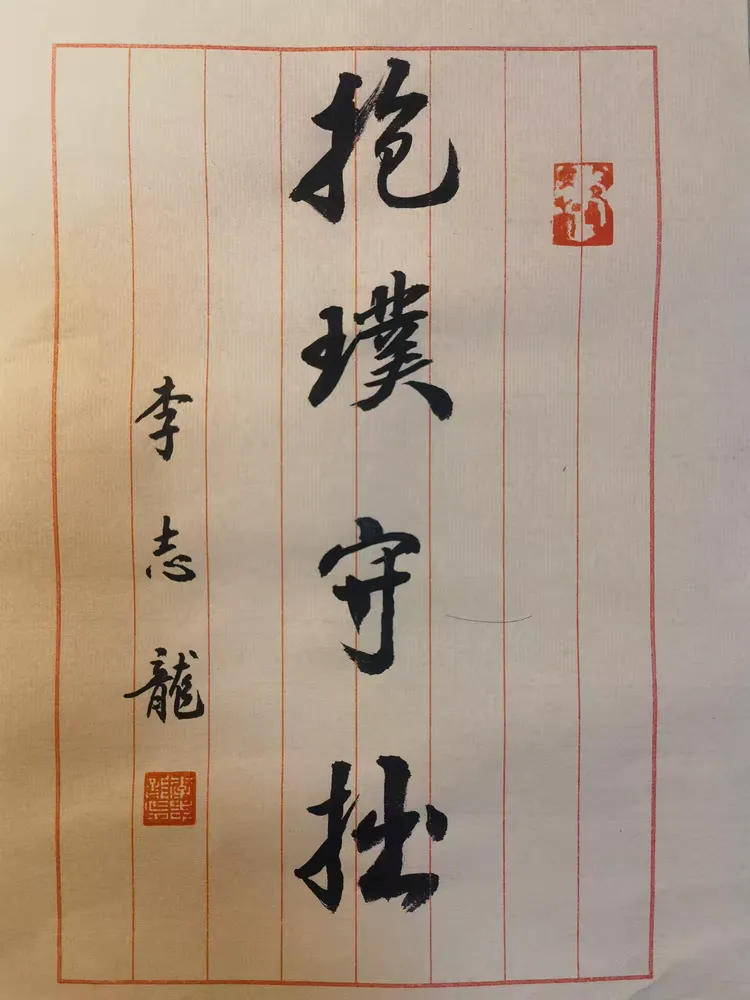 抱璞守拙
李志龍